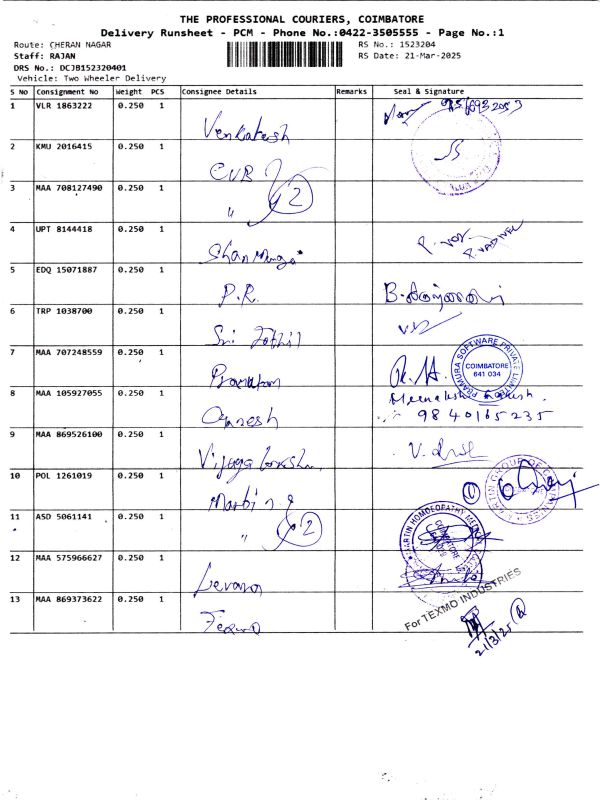 THE PROFESSIONAL COURIERS, COIMBATORE
Delivery Runsheet - PCM - Phone No.:0422-3505555 - Page No.:1
Route: CHERAN NAGAR
RS No.: 1523204
Staff: RAJAN
RS Date: 21-Mar-2025
DRS No.: DCJB152320401
Vehicle: Two Wheeler Delivery
S No Consignment No Weight PCS Consignee Details Remarks Seal & Signature
1 VLR 1863222 0.250 1 Venkatesh
2 KMU 2016415 0.250 1 CVR
3 MAA 708127490 0.250 1 " 2
4 UPT 8144418 0.250 1 Shanmuga
5 EDQ 15071887 0.250 1 P.R.
6 TRP 1038700 0.250 1 Sri Jothi
7 MAA 707248559 0.250 1 PRAMURA SOFTWARE PRIVATE LIMITED COIMBATORE 641 034
8 MAA 105927055 0.250 1 Ganesh Meenakshi 9840165235
9 MAA 869526100 0.250 1
10 POL 1261019 0.250 1 Martin
11 ASD 5061141 0.250 1 " 2 MARTIN HOMOEOPATHY COIMBATORE
12 MAA 575966627 0.250 1
13 MAA 869373622 0.250 1 Texmo For TEXMO INDUSTRIES
21/3/25